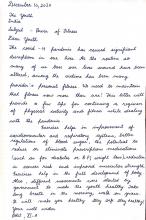 December 10, 2020
The Youth
India
Subject - Power of Fitness
Dear Youth
The covid-19 pandemic has caused significant
disruption in our lives. As the routine as
many of us does or have
altered, among the victims has been many
people's personal fitness. We need to maintain
that fitness now more than ever. This letter will
provide a few tips for continuing a regimen
of physical activity and fitness while dealing
with the pandemic.
Exercise helps in improvement of
cardiovascular and respiratory system, better
regulation of blood sugar, the potential to
reduce or eliminate prescription medication
(such as for diabetes or B.P) weight loss, reduction
in cancer risk and improved immune strength
Exercise helps in the full development of body
and different movements were started by
government to make the youth healthy. Take
deep breath in the morning, walk on grass
It will make you healthy stay safe stay happy
your well wisher